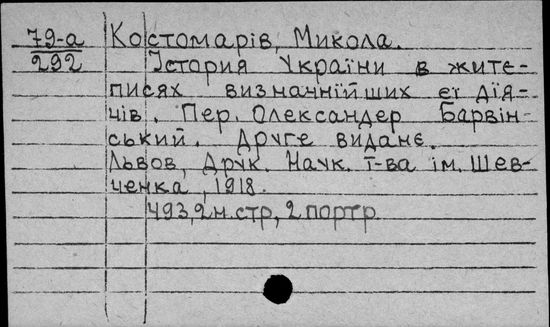 79-а
292
Костомарів, Микола.
Істория України в жите-
писях визнаннїйших єї дїя-
чів. Пер. Олександер Барвін-
ський. Друге виданє.
Львов, Друк. Наук. т-ва ім. Шев-
ченка, 1918.
493, 2 н. стр, 2 портр